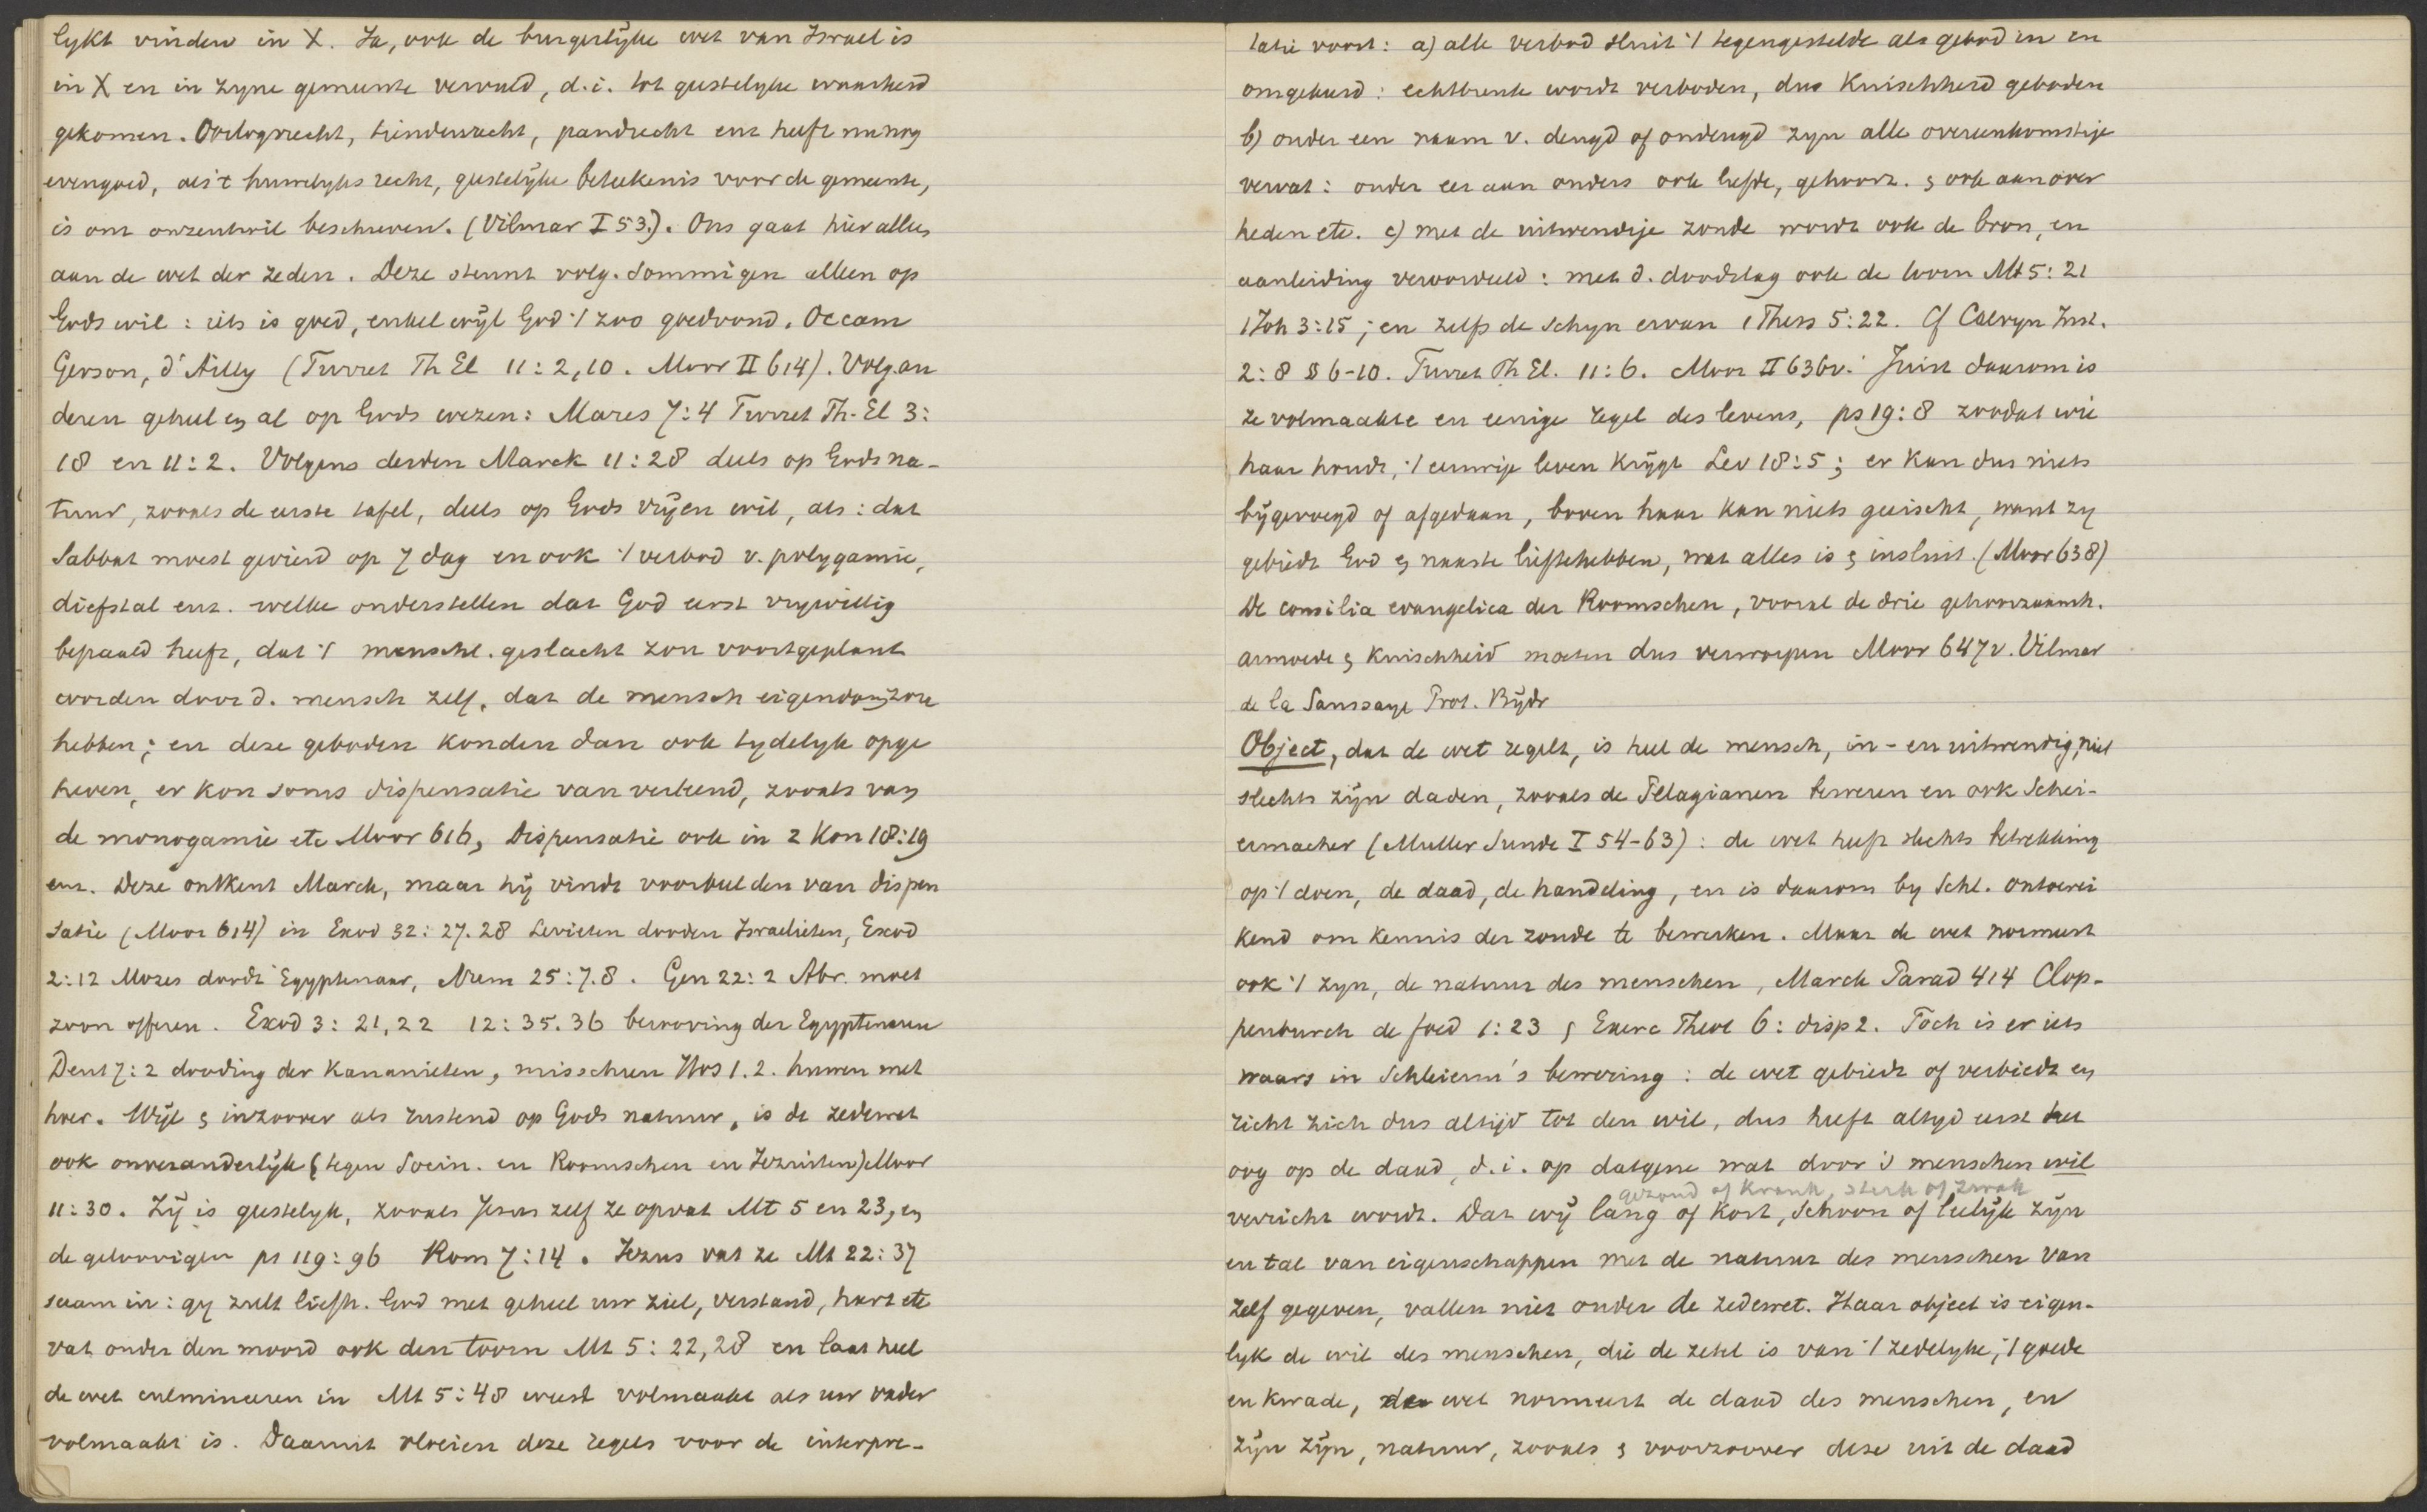 lykt vinden in X. Ja, ook de burgerlÿke wet van Israel is
in X en in zyne gemeente vervuld, d.i. tot geestelyke waarheid
gekomen. Oorlogsrecht, kinderrecht, pandrecht enz heeft nu nog
evengoed, als 't huwelyks recht, geestelÿke beteekenis voor de gemeente,
is om onzentwil beschreven. (Vilmar I 53.). Ons gaat hier alles
aan de wet der zeden. Deze steunt volg. sommigen alleen op
Gods wil: iets is goed, enkel wÿl God 't zoo goedvond. Occam
Gerson, d'Ailly (Turret Th El 11:2,10. Moor II 614). Volg. an
deren geheel en al op Gods wezen: Mares 7:4 Turret Th. El 3:
18 en 11:2. Volgens derden Marck 11:28 deels op Gods na-
tuur, zooals de eerste tafel, deels op Gods vrÿen wil, als: dat
Sabbat moest gevierd op 7 dag en ook 't verbod v. polygamie,
diefstal enz. welke onderstellen dat God eerst vrywillig
bepaald heeft, dat 't menschl. geslacht zou voortgeplant
worden door d. mensch zelf, dat de mensch eigendom zou
hebben; en deze geboden konden dan ook tydelyk opge
heven, er kon soms dispensatie van verleend, zooals van
de monogamie etc Moor 616, Dispensatie ook in 2 Kon 18:19
enz. Deze ontkent Marck, maar hÿ vindt voorbeelden van dispen
satie (Moor 614) in Exod 32:27.28 Levieten dooden Israelieten, Exod
2:12 Mozes doodt Egyptenaar, Num 25:7.8. Gen 22:2 Abr. moet
zoon offeren. Exod 3:21,22 12:35.36 berooving der Egyptenaren
Deut 7:2 dooding der Kananieten, misschien Hos 1.2. huwen met
hoer. Wÿl & inzoover als rustend op Gods natuur, is de zedewet
ook onveranderlÿk (tegen Socin. en Roomschen en Jezuiten) Moor
11:30. Zÿ is geestelyk, zooals Jezus zelf ze opvat Mt 5 en 23, en
de geloovigen ps 119:96 Rom 7:14. Jezus vat ze Mt 22:37
saam in: gy zult liefh. God met geheel uw ziel, verstand, hart etc
vat onder den moord ook den toorn Mt 5:22,28 en laat heel
de wet culmineeren in Mt 5:48 weest volmaakt als uw vader
volmaakt is. Daaruit vloeien deze regels voor de interpre-
tatie voort: a) alle verbod sluit 't tegengestelde als gebod in en
omgekeerd: echtbreuk wordt verboden, dus Kuischheid geboden
b) onder een naam v. deugd of ondeugd zyn alle overeenkomstige
vervat: onder eer aan ouders ook liefde, gehoorz. & ook aan over
heden etc. c) met de uitwendige zonde wordt ook de bron, en
aanleiding veroordeeld: met d. doodslag ook de toorn Mt 5:21
1 Joh 3:15; en zelfs de schyn ervan 1 Thess 5:22. Cf Calvyn Inst.
2:8 § 6-10. Turret Th El. 11:6. Moor II 636v. Juist daarom is
ze volmaakte en eenige regel des levens, ps 19:8 zoodat wie
haar houdt, 't eeuwige leven krÿgt Lev 18:5; er kan dus niets
bÿgevoegd of afgedaan, boven haar kan niets geëischt, want zy
gebiedt God & naaste liefhebben, wat alles is & insluit. (Moor 638)
De consilia evangelica der Roomschen, vooral de drie gehoorzaamh.
armoede & kuischheid moeten dus verworpen Moor 647v. Vilmar
de la Saussaye Prot. Bÿdr
Object, dat de wet regelt, is heel de mensch, in- en uitwendig, niet
slechts zÿn daden, zooals de Pelagianen beweren en ook Schei-
ermacher (Muller Sunde I 54-63): de wet heeft slechts betrekking
op 't doen, de daad, de handeling, en is daarom by Schl. ontoerei
kend om kennis der zonde te bewerken. Maar de wet normeert
ook 't zyn, de natuur des menschen, Marck Parad 414 Clop-
penburch de foed 1:23 & Exerc Theol 6: disp 2. Toch is er iets
waars in Schleierm's bewering: de wet gebiedt of verbiedt en
richt zich dus altÿd tot den wil, dus heeft altyd eerst het
oog op de daad, d.i. op datgene wat door 's menschen wil
gezond of krank, sterk of zwak
verricht wordt. Dat wÿ lang of kort, schoon of leelÿk zÿn
en tal van eigenschappen met de natuur des menschen van
zelf gegeven, vallen niet onder de zedewet. Haar object is eigen-
lyk de wil des menschen, die de zetel is van 't zedelyke, 't goede
en kwade, de wet normeert de daad des menschen, en
zÿn zÿn, natuur, zooals & voorzoover deze uit de daad